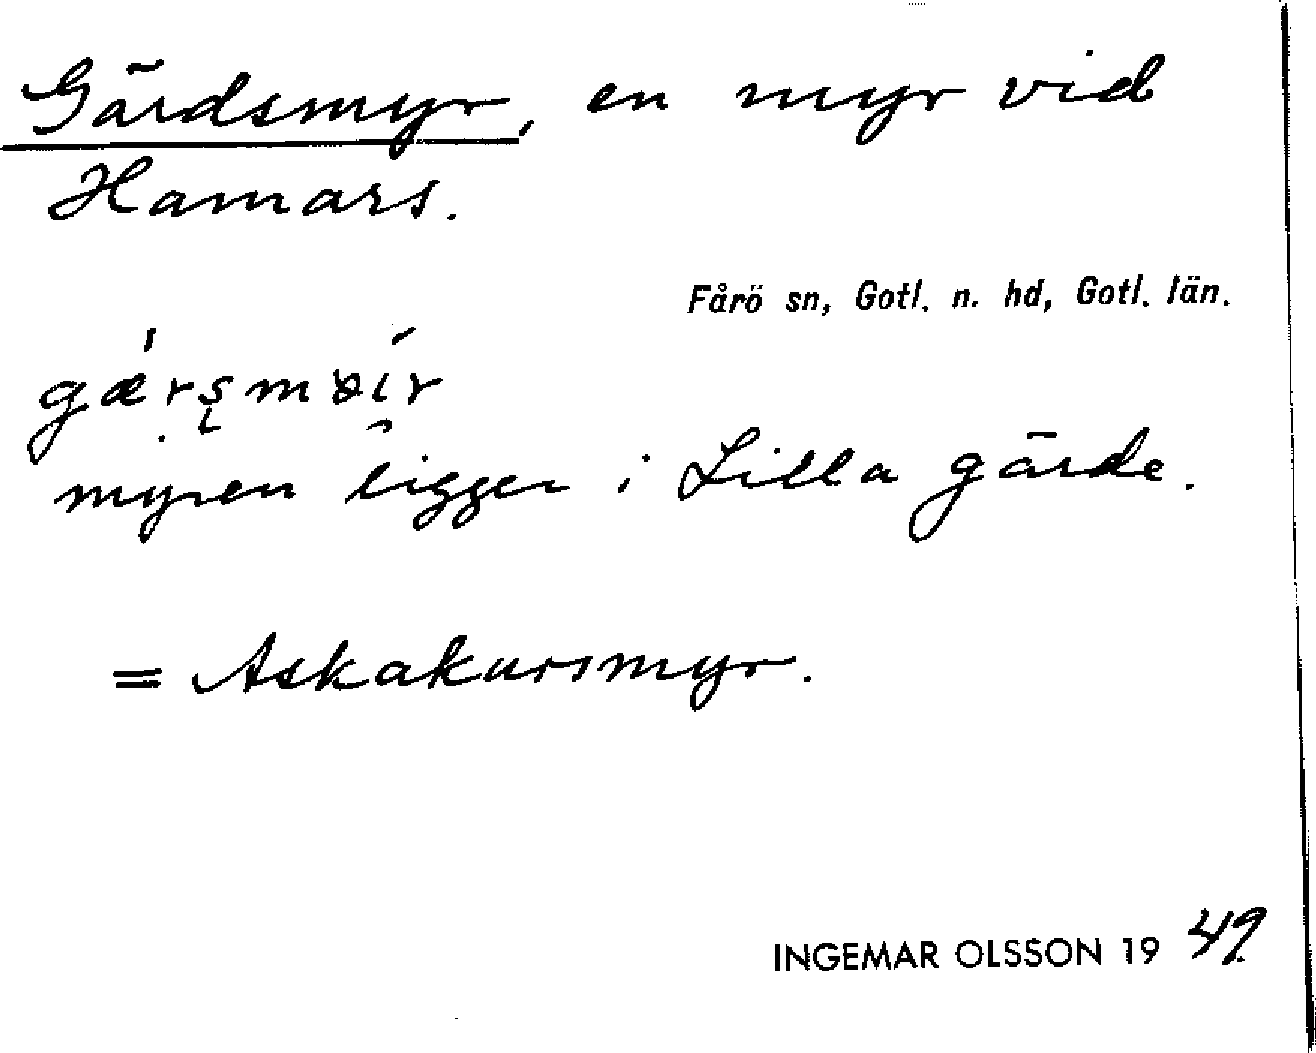 Gärdsmyr, en myr vid
Hamars.
Fårö sn, Gotl. n. hd, Gotl. län.
myren ligger i Lilla gärde.
= Askakursmyr.
INGEMAR OLSSON 19 49